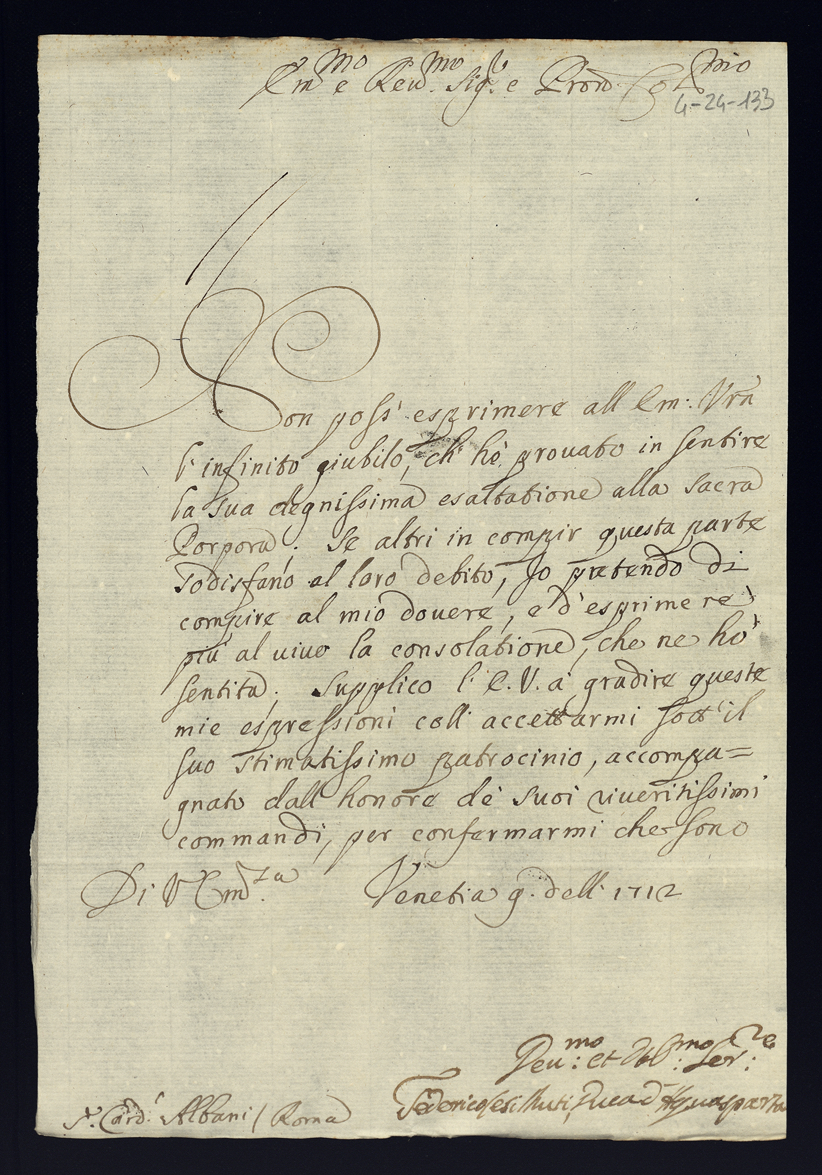 Em.mo e Reu.mo Sig.r e Pron Col.mo
4-24-133
Non poss' esprimere all Em: Vrã
l'infinito giubilo, ch' hò prouato in sentire
la sua degnissima esaltatione alla sacra
Porpora. Se altri in compir questa parte
sodisfano al loro debito, Io pretendo di
compire al mio douere, e d'esprimere
più al uiuo la consolatione, che ne hò
sentita. Supplico l'E.V. à gradire queste
mie espressioni coll' accettarmi sott'il
suo stimatissimo patrocinio, accompa=
gnato dall honore de suoi riueritissimi
commandi, per confermarmi che sono
Di V Em.za Venetia 9. dell' 1712
Deu:mo et Obl:mo Ser:re
Federico Cesi Muti, Duca d'Aquasparta
S.r Card.l Albani / Roma